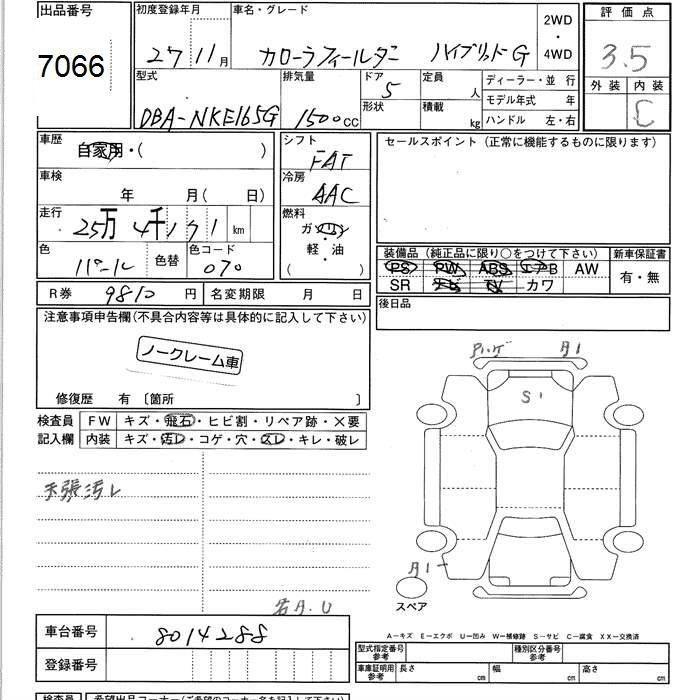 出品番号
7066
初度登録年月
27 11月
車名・グレード
カローラフィールダー ハイブリッドG
2WD
・
4WD
評価点
3.5
外装 内装
C
型式
DBA-NKE165G
排気量
1500cc
ドア
5
形状
定員
人
積載
kg
ディーラー・並行
モデル年式 年
ハンドル 左・右
車歴
自家用・( )
車検
年 月( 日)
走行
25万 4千171km
色
パール
色替
色コード
070
シフト
FAT
冷房
AAC
燃料
ガソリン
軽・油
( )
セールスポイント(正常に機能するものに限ります)
装備品(純正品に限り○をつけて下さい)
PS PW ABS エアB AW
SR ナビ TV カワ
新車保証書
有・無
R券 9810円
名変期限 月 日
後日品
注意事項申告欄(不具合内容等は具体的に記入して下さい)
ノークレーム車
修復歴 有 〔箇所 〕
検査員
記入欄
FW キズ・飛石・ヒビ割・リペア跡・×要
内装 キズ・汚レ・コゲ・穴・スレ・キレ・破レ
天張汚レ
Pハゲ
A1
S1
A1
スペア
名A.U
A−キズ E−エクボ U−凹み W−補修跡 S−サビ C−腐食 XX−交換済
車台番号 8014288
登録番号
型式指定番号
参考
種別区分番号
参考
車庫証明用
参考
長さ cm
幅 cm
高さ cm
検査員
希望出品コーナー(ご希望のコーナー名を記入して下さい)